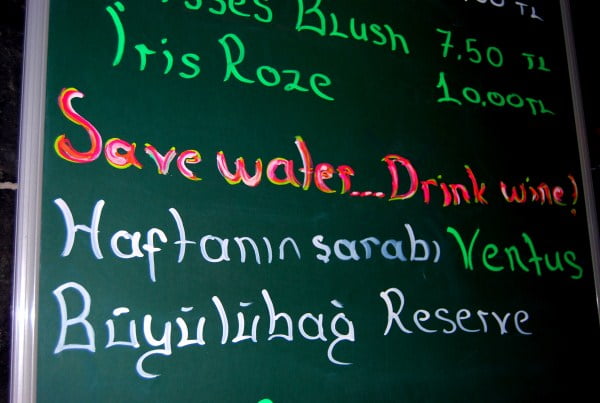 Blush 7.50 TL
İris Roze 10.00 TL
Save water...Drink wine!
Haftanın şarabı Ventus
Büyülübağ Reserve